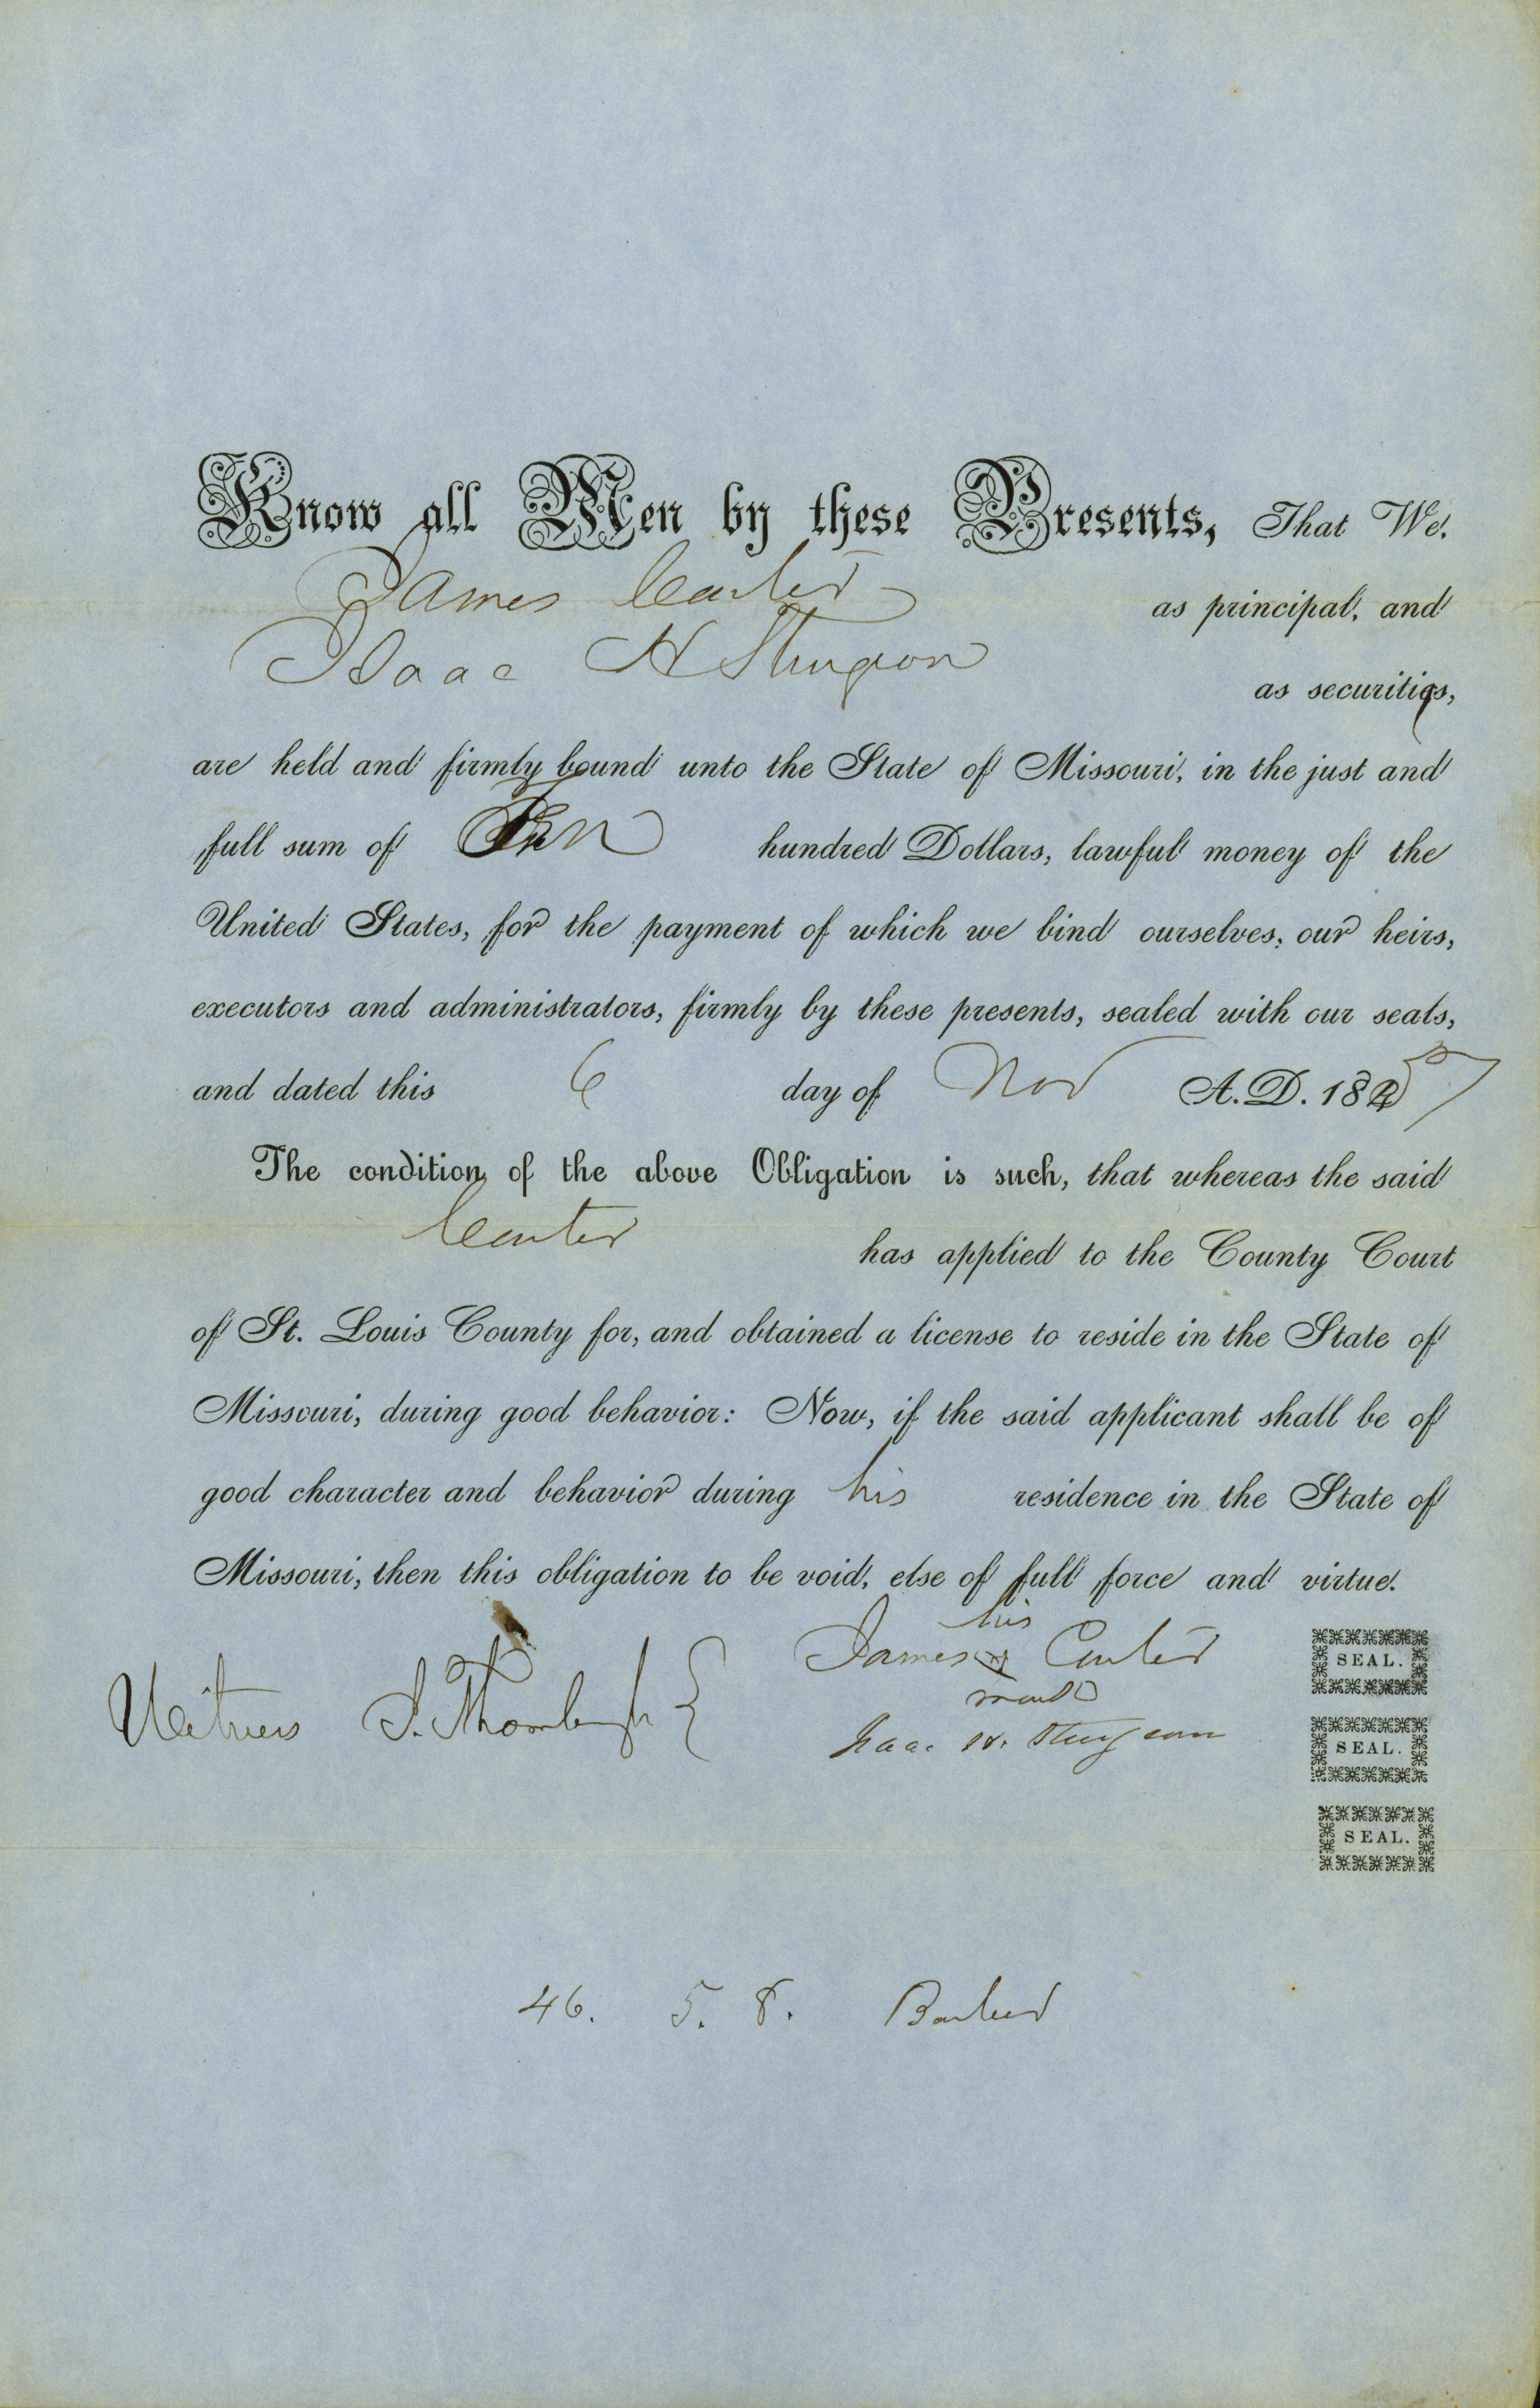 Know all Men by these Presents, That We,
James Carter as principal, and
Isaac H Sturgeon as securities,
are held and firmly bound unto the State of Missouri, in the just and
full sum of Ten hundred Dollars, lawful money of the
United States, for the payment of which we bind ourselves, our heirs,
executors and administrators, firmly by these presents, sealed with our seals,
and dated this 6 day of Nov A. D. 1857
The condition of the above Obligation is such, that whereas the said
Carter has applied to the County Court
of St. Louis County for, and obtained a license to reside in the State of
Missouri, during good behavior: Now, if the said applicant shall be of
good character and behavior during his residence in the State of
Missouri, then this obligation to be void, else of full force and virtue.
his
James X Carter SEAL.
mark
Witness J. Thornburgh
Isaac H. Sturgeon SEAL.
SEAL.
46. 5. 8. Barber